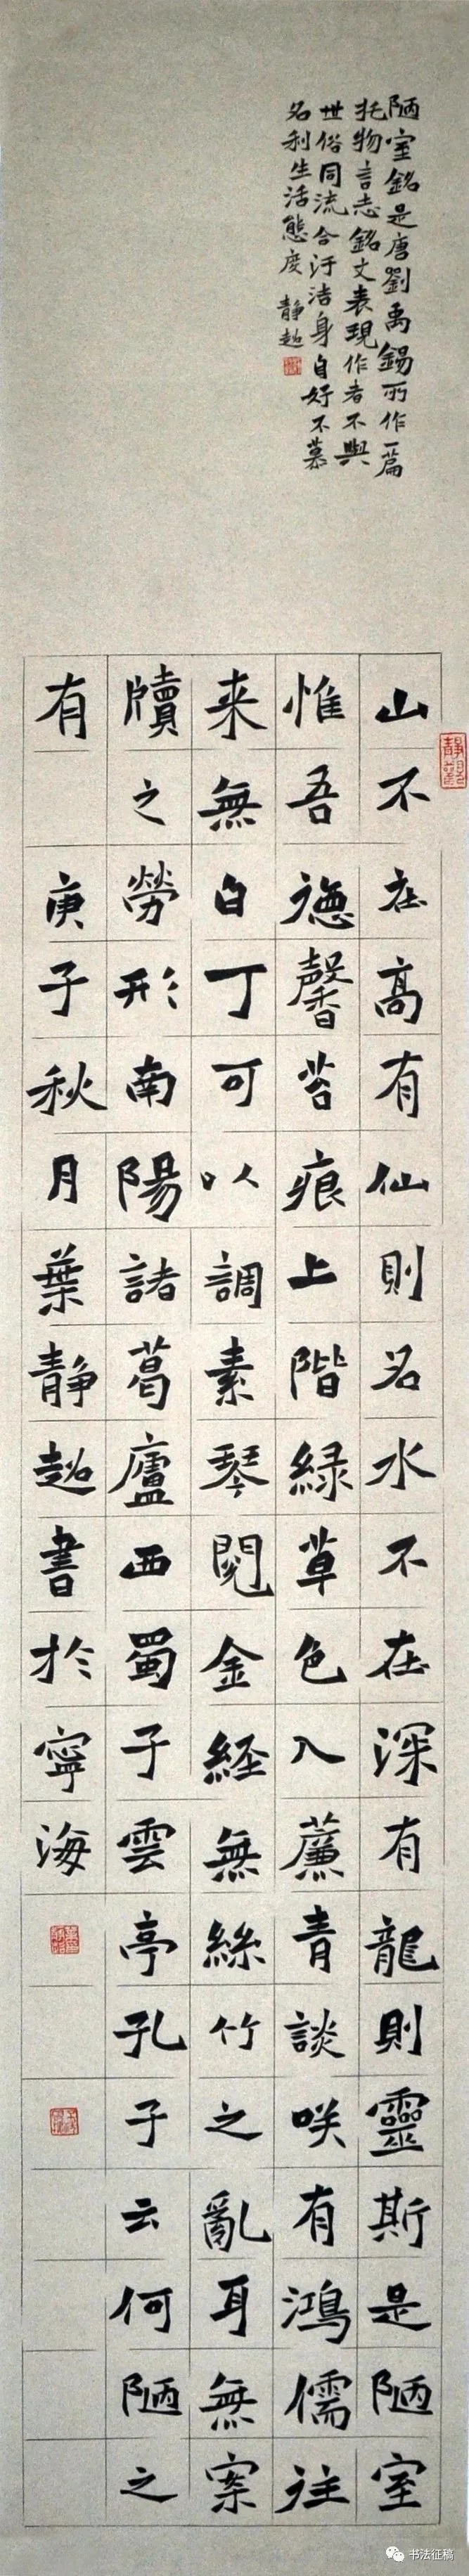 陋室銘是唐劉禹錫所作一篇
托物言志銘文表現作者不與
世俗同流合汙洁身自好不慕
名利生活態度 静超
山不在高有仙則名水不在深有龍則靈斯是陋室
惟吾德馨苔痕上階緑草色入簾青談咲有鴻儒往
来無白丁可以調素琴閲金経無絲竹之亂耳無案
牘之勞形南陽諸葛廬西蜀子雲亭孔子云何陋之
有 庚子秋月葉静超書於寧海
书法征稿